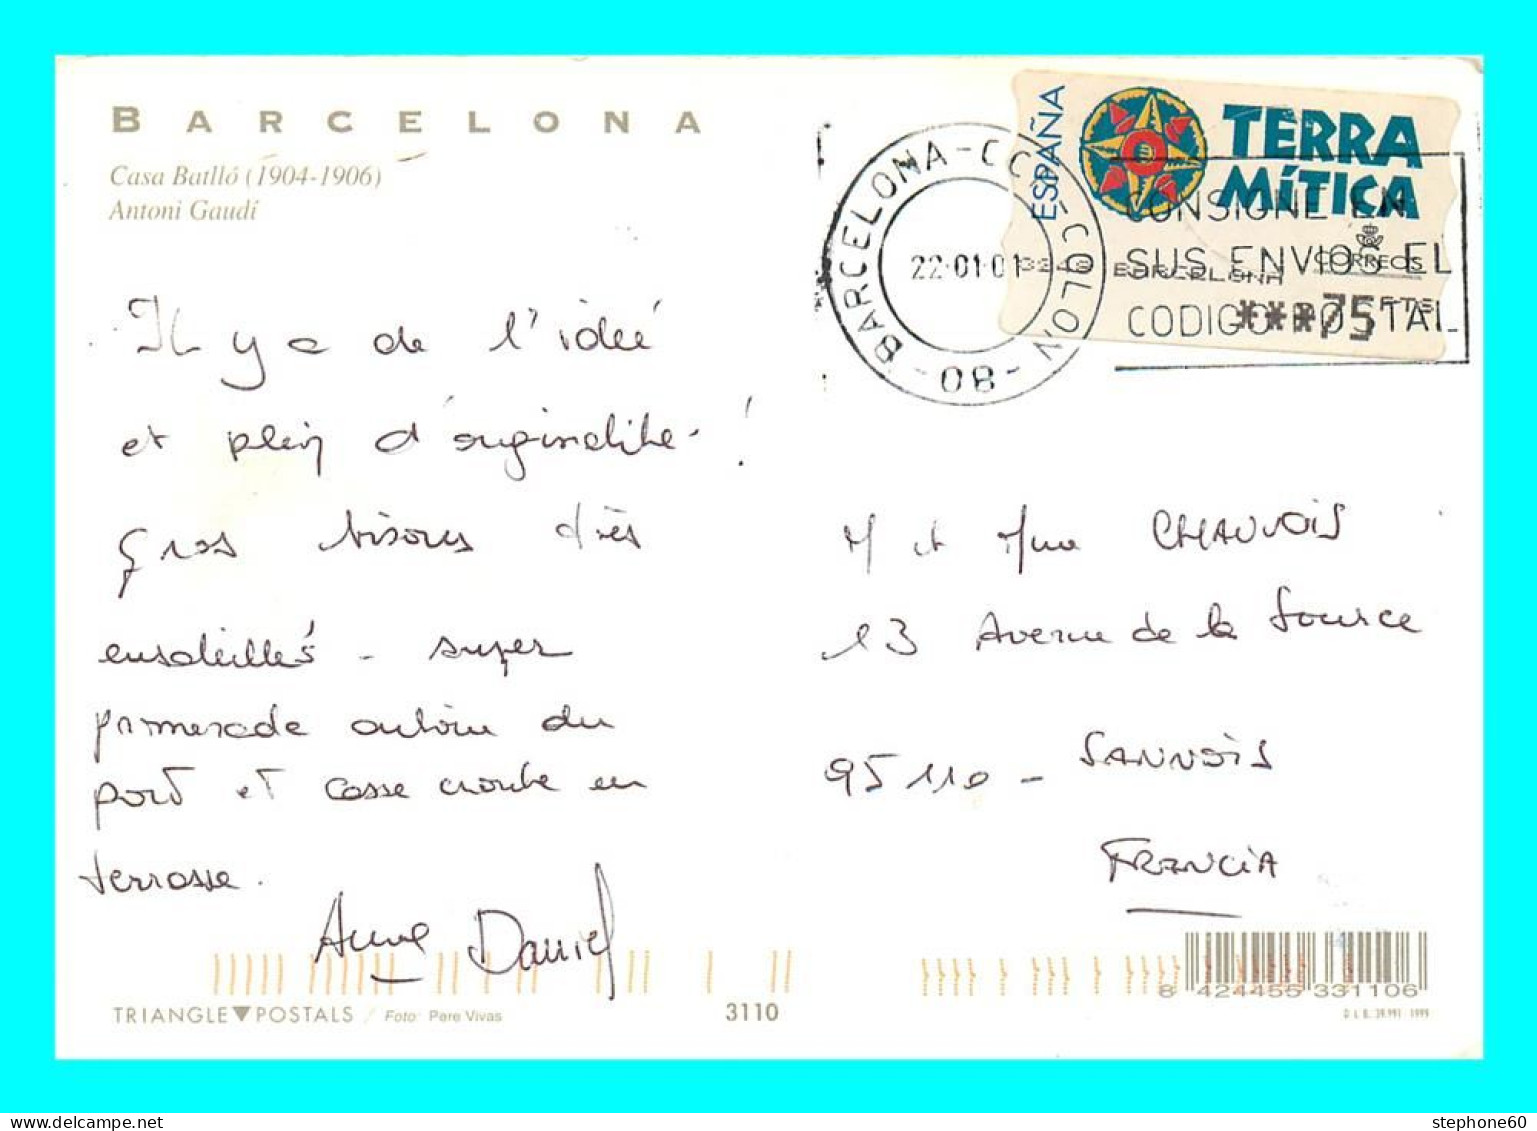 BARCELONA
Casa Batlló (1904-1906)
Antoni Gaudí
Il y a de l'idée
et plein d'originalité !
Gros bisous très
ensoleillés - super
promenade autour du
port et casse croute en
terrasse.
Anne Daniel
ESPAÑA
TERRA
MÍTICA
CORREOS
BARCELONA
***75 PTS
BARCELONA-CCP-COLON
22-01-01
-08-
CONSIGNE EN
SUS ENVIOS EL
CODIGO POSTAL
M et Mme CHAUVOIS
13 Avenue de la Source
95110 - SANNOIS
FRANCIA
8 424455 331106
D.L.B. 39.991-1999
TRIANGLE▼POSTALS / Foto: Pere Vivas
3110
stephone60